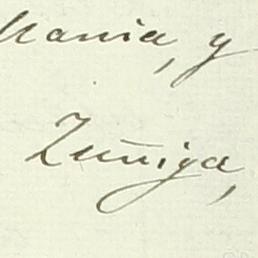 Mania, y
Zuñiga,